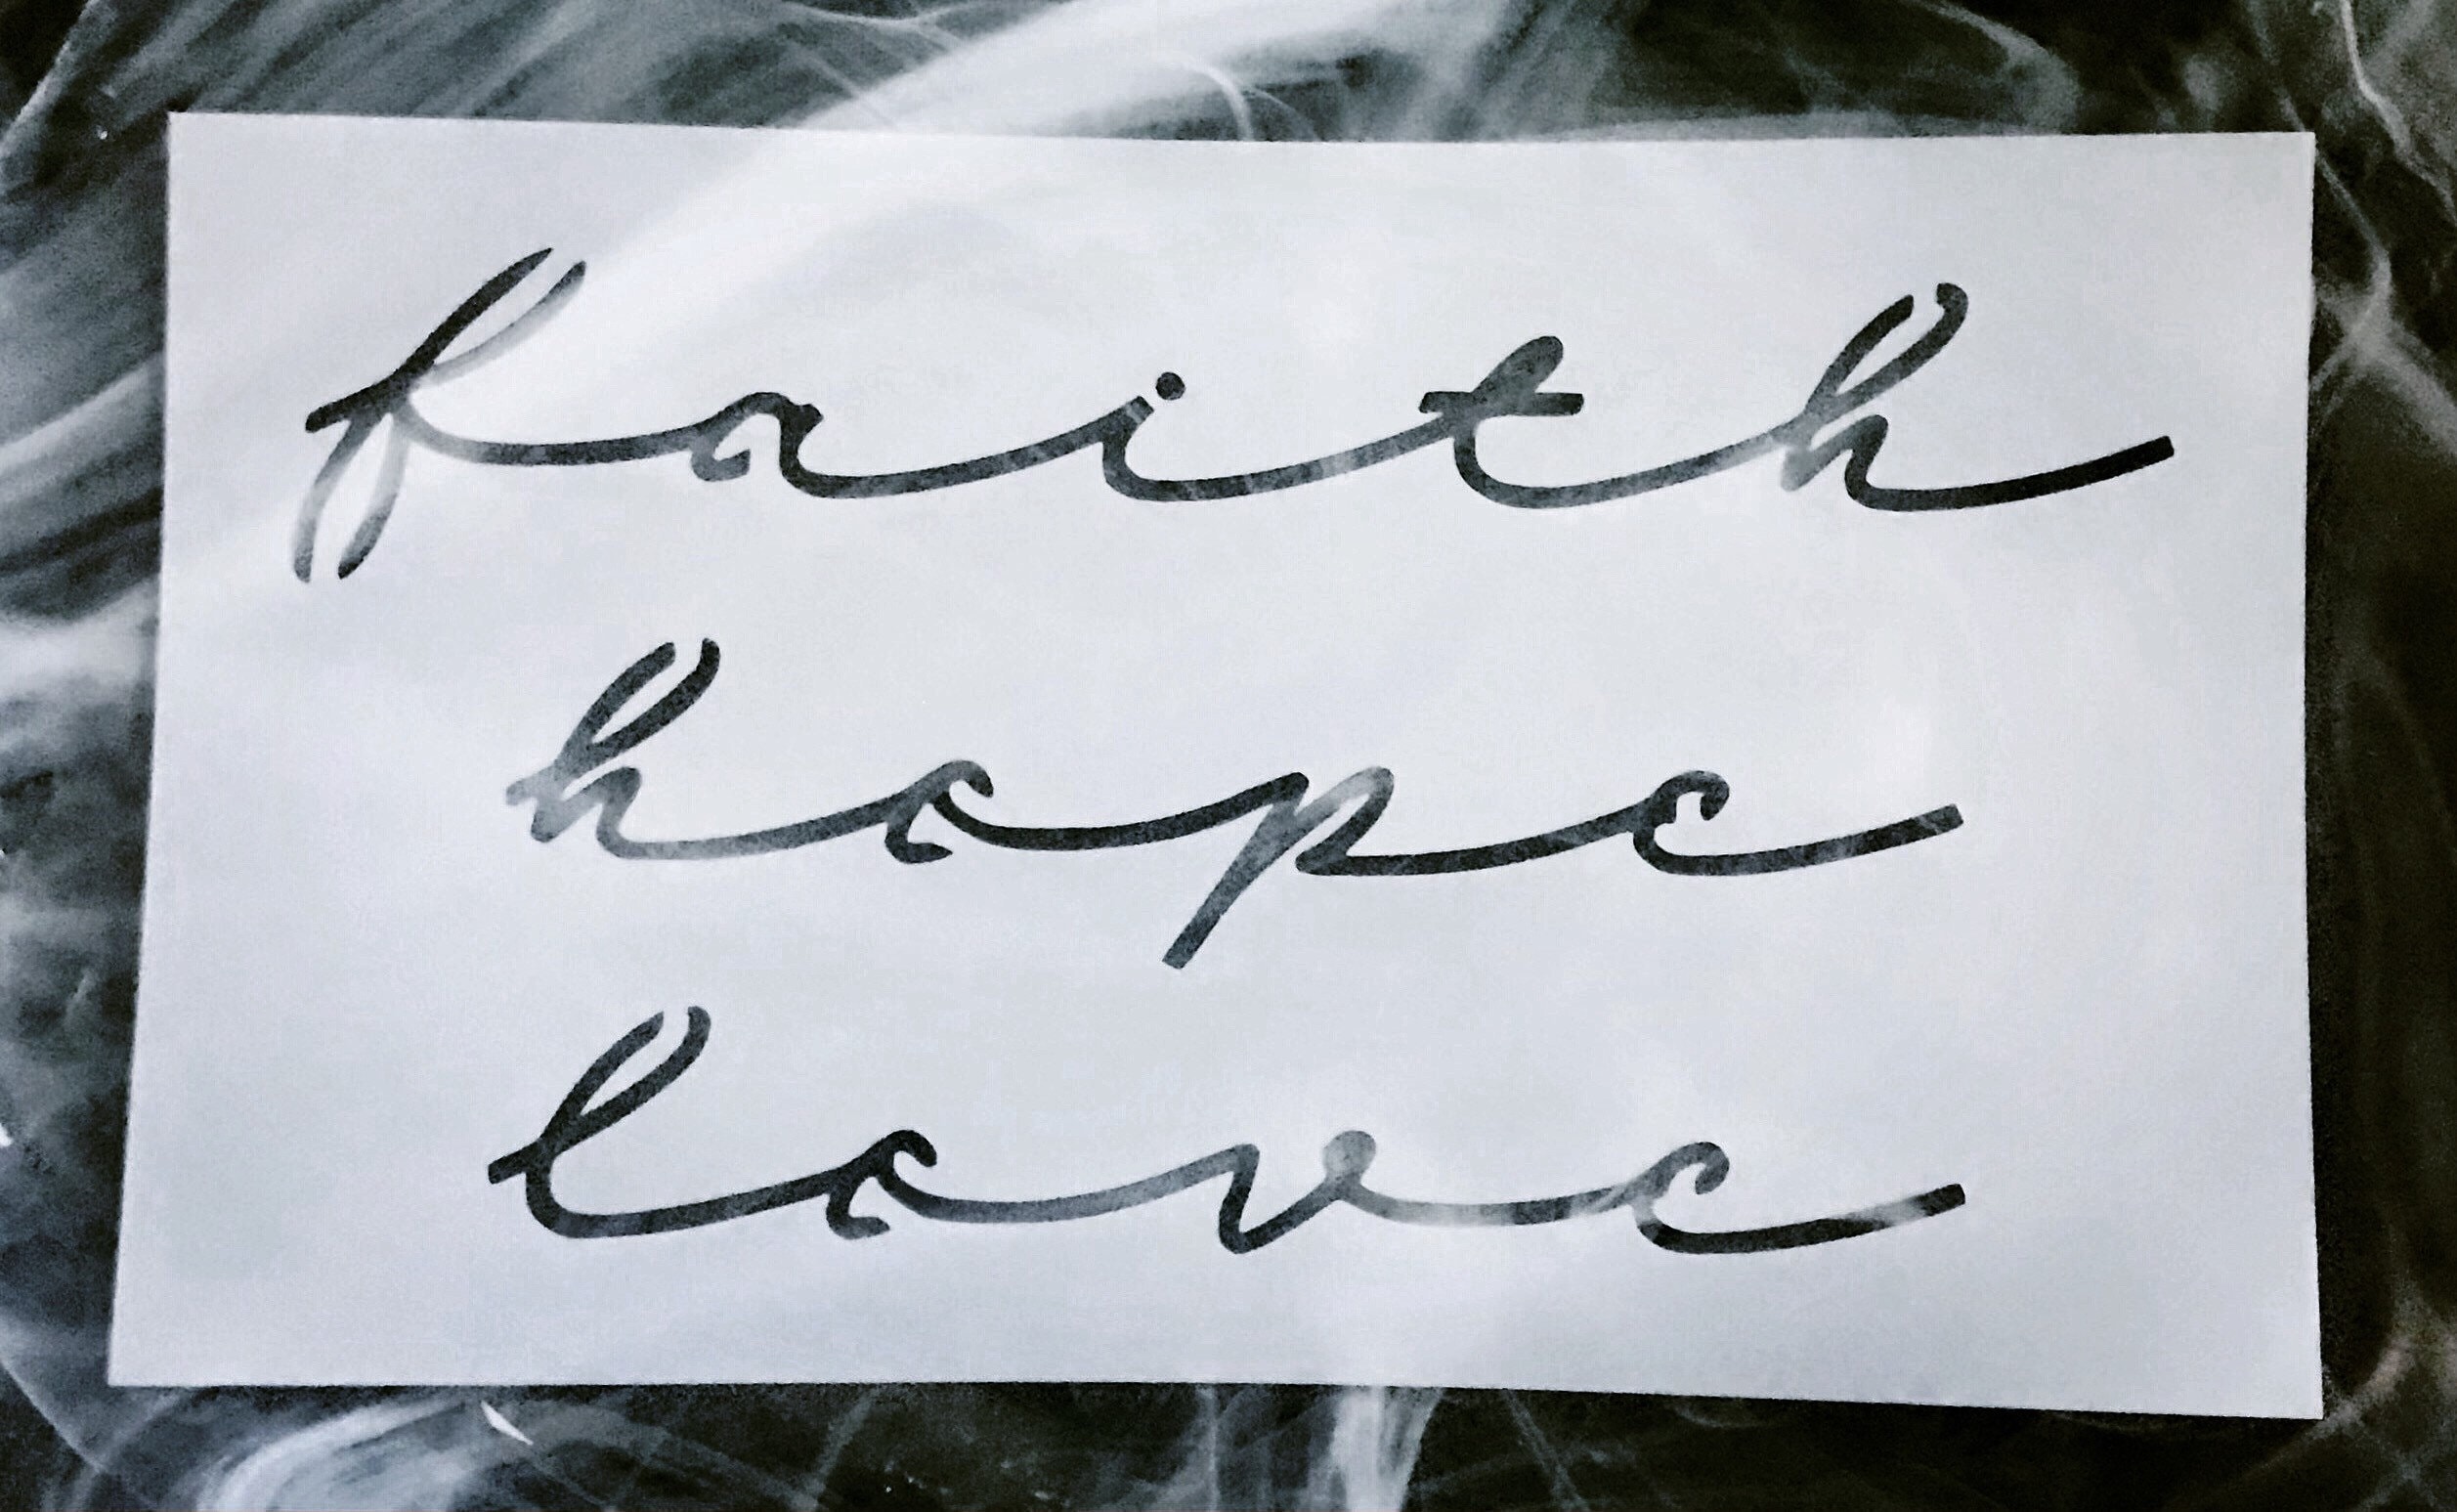 faith
hope
love